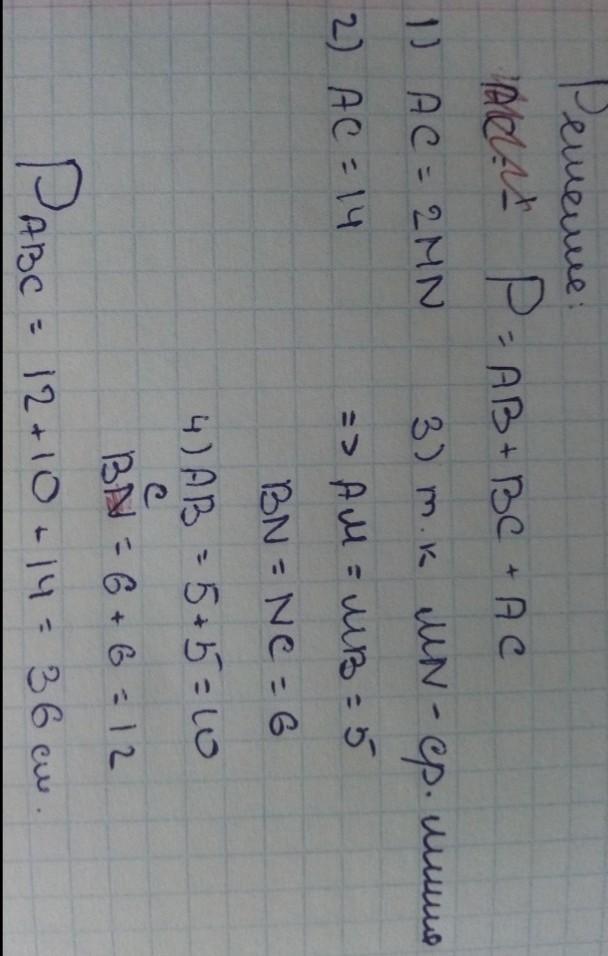 Решение:
P = AB + BC + AC
1) AC = 2MN
2) AC = 14
3) т.к MN - ср. линия
=> AM = MB = 5
BN = NC = 6
4) AB = 5+5 = 10
BC = 6 + 6 = 12
P ABC = 12 + 10 + 14 = 36 см.